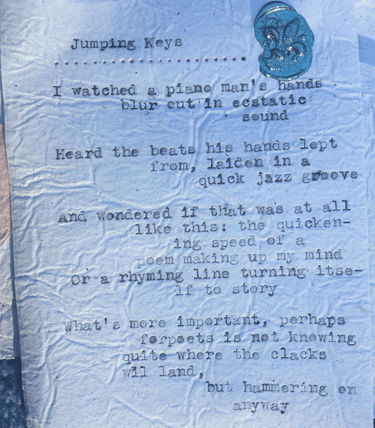 Jumping Keys
.........................
I watched a piano man's hands
blur out in ecstatic
sound
Heard the beats his hands lept
from, laiden in a
quick jazz groove
And wondered if that was at all
like this: the quicken-
ing speed of a
poem making up my mind
Or a rhyming line turning itse-
lf to story
What's more important, perhaps
forpoets is not knowing
quite where the clacks
wil land,
but hammering on
anyway